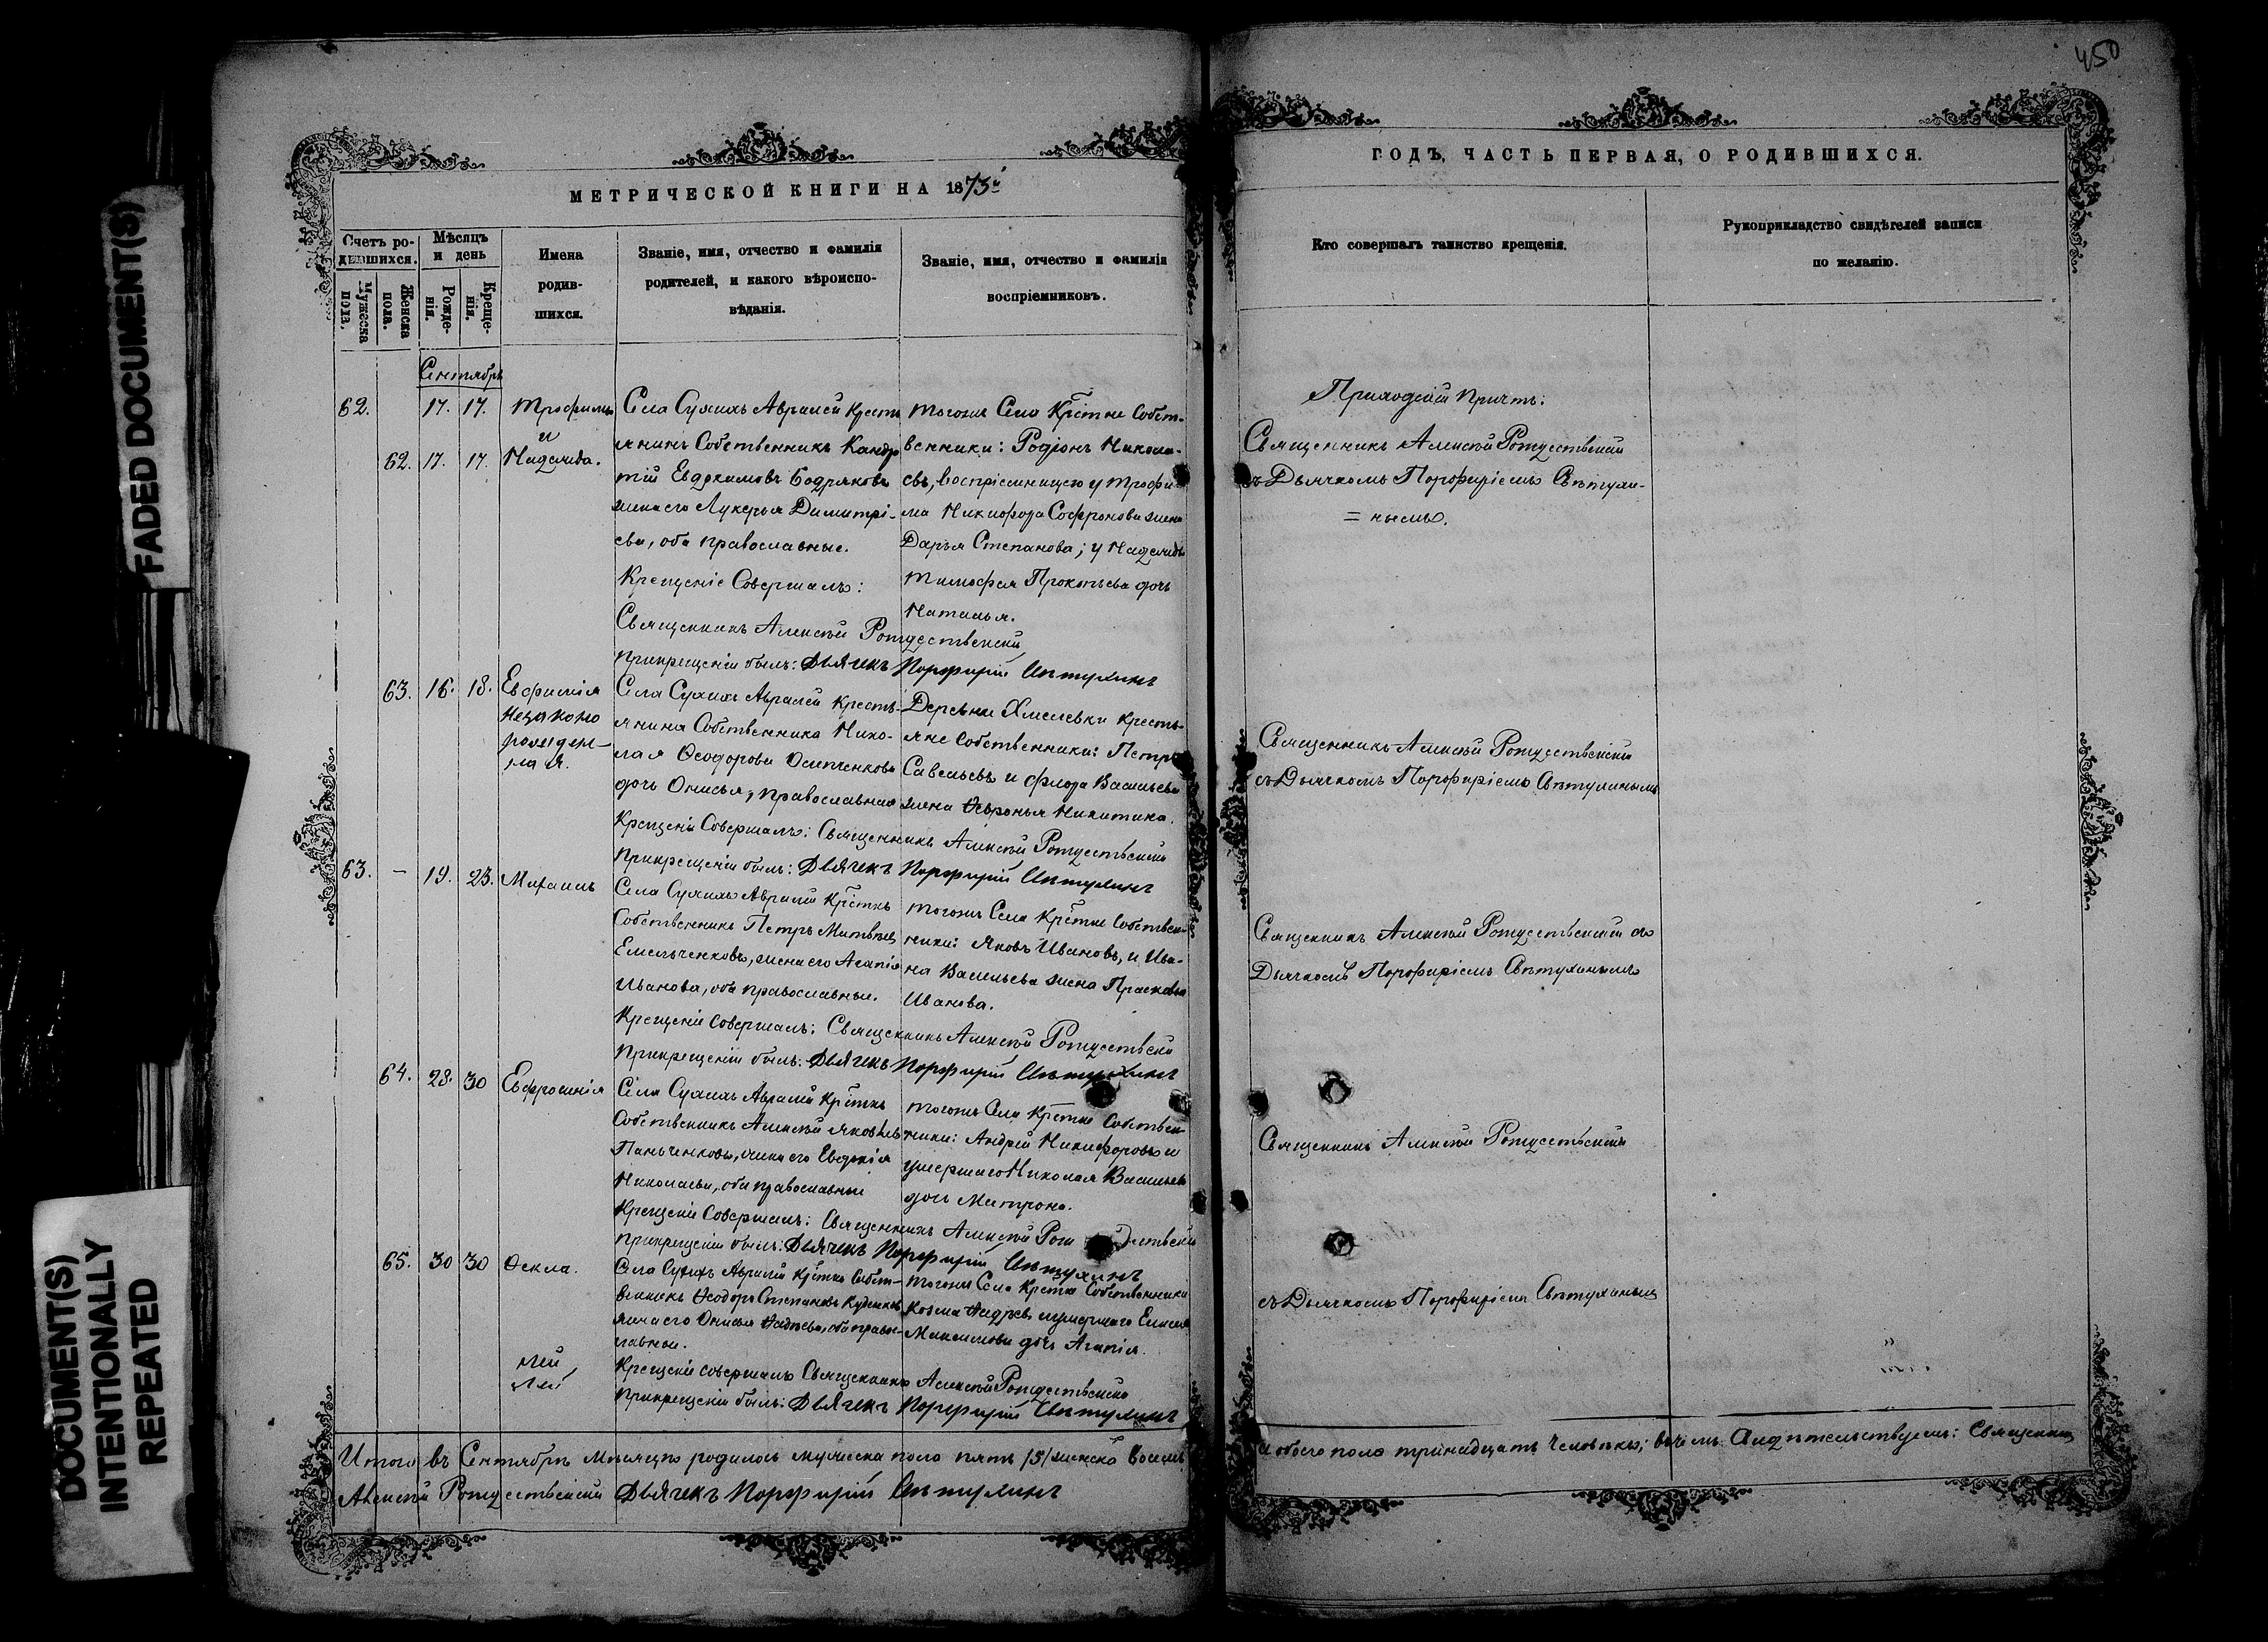 450
FADED DOCUMENT(S)
DOCUMENT(S)
INTENTIONALLY
REPEATED
МЕТРИЧЕСКОЙ КНИГИ НА 1873й
ГОДЪ, ЧАСТЬ ПЕРВАЯ, О РОДИВШИХСЯ.
Счетъ родившихся.
Мужеска пола.
Женска пола.
Мѣсяцъ и день
Рожденія.
Крещенія.
Имена
родив-
шихся.
Званіе, имя, отчество и фамилія
родителей, и какого вѣроиспо-
вѣданія.
Званіе, имя, отчество и фамилія
воспріемниковъ.
Кто совершалъ таинство крещенія.
Рукоприкладство свидѣтелей записи
по желанію.
Сентябрь
62. 17. 17. Трофимъ
и
62. 17. 17. Надежда.
Села Сухихъ Авралей Кресть
янинъ Собственникъ
тій Евдокимовъ Бодряковъ
жена его Лукерья Димитрі-
ева, оба православные.
Крещеніе Совершалъ:
Священникъ Алексѣй Рождественскій
При крещеніи былъ: Дьячекъ Порфирій
тогожъ Села Крестне Собст-
венники: Родіонъ Никола-
евъ, воспріемницею у Трофи-
ма Никифора Софронова жена
Дарья Степанова; у Надежды
Тимофея Прокопьева дочь
Наталья.
Приходскій Причтъ:
Священникъ Алексѣй Рождественскій
съ Дьячкомъ Порфиріемъ
= нымъ.
63. 16. 18. Евфимія
незаконо
рожден-
ная.
Села Сухихъ Авралей Кресть-
янина Собственника Нико-
лая Ѳеодорова
дочь Онисья, православная
Крещеніе Совершалъ: Священникъ Алексѣй Рождественскій
При крещеніи былъ: Дьячекъ Порфирій
Деревни Хмелевки Кресть-
яне Собственники: Петръ
Савельевъ и Флора Васильева
жена Ѳевронья Никитина.
Священникъ Алексѣй Рождественскій
съ Дьячкомъ Порфиріемъ
63. – 19. 23. Михаилъ
Села Сухихъ Авралей Крестнъ
Собственникъ Петръ Матвѣевъ
Емельченковъ, жена его Агапія
Иванова, оба православные.
Крещеніе Совершалъ: Священникъ Алексѣй Рождественскій
При крещеніи былъ: Дьячекъ Порфирій
тогожъ Села Крестне Собствен-
ники: Яковъ Ивановъ, и Ива-
на Васильева жена Прасковья
Иванова.
Священникъ Алексѣй Рождественскій съ
Дьячкомъ Порфиріемъ
64. 28. 30 Евфросинія
Села Сухихъ Авралей Крестнъ
Собственникъ Алексѣй Яковлевъ
Панченковъ, жена его Евдокія
Николаева, оба православные
Крещеніе Совершалъ: Священникъ Алексѣй Рождественскій
При крещеніи былъ: Дьячекъ Порфирій
тогожъ Села Крестне Собствен-
ники: Андрей Никифоровъ и
умершаго Николая Васильева
дочь Матрона.
Священникъ Алексѣй Рождественскій
65. 30 30 Ѳекла.
Села Сухихъ Авралей Крестнъ Собст-
венникъ Ѳеодоръ Степановъ
жена его Онисья оба право-
славные.
Крещеніе совершалъ Священникъ Алексѣй Рождественскій
При крещеніи былъ: Дьячекъ Порфирій
тогожъ Села Крестне Собственники
Козма умершаго
Максимова дочь Агапія.
съ Дьячкомъ Порфиріемъ
Итого въ Сентябрѣ Мѣсяцѣ родилось мужеска пола пять /5/ женска восемь
а обоего пола тринадцать человѣкъ; въ чемъ свидѣтельствуемъ: Священникъ
Алексѣй Рождественскій Дьячекъ Порфирій